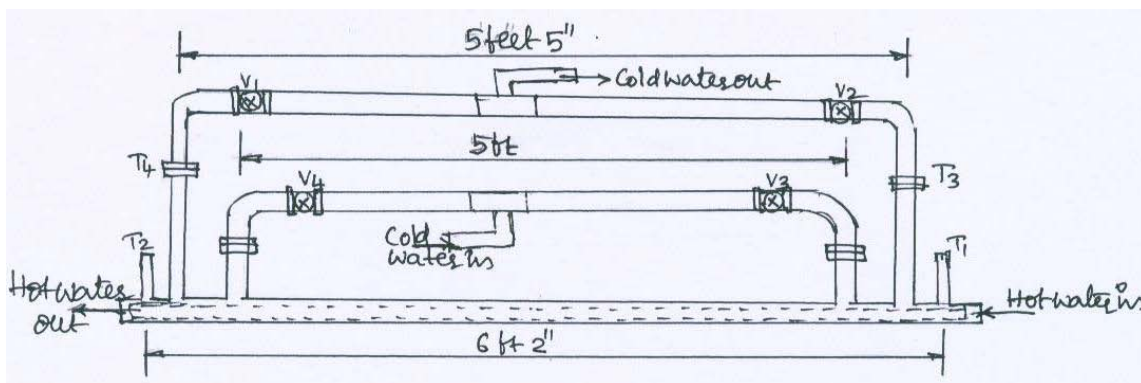 5 feet 5"
V1
V2
Cold water out
5ft
T4
T3
V4
V3
Cold
water in
T2
T1
Hot water
out
Hot water in
6 ft 2"